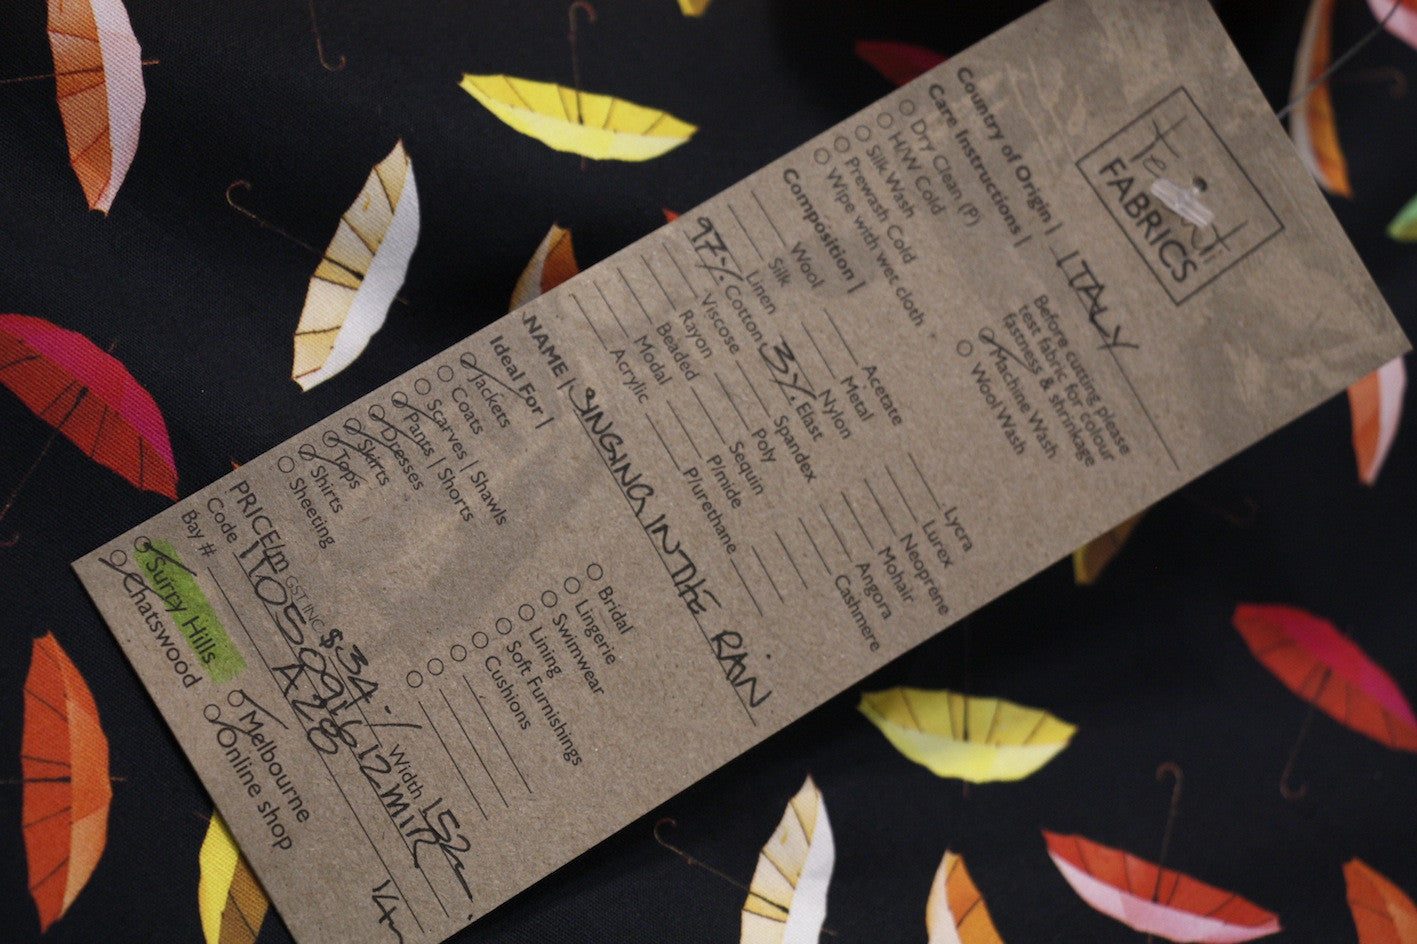 FABRICS
Country of Origin | ITALY
Care Instructions |
Dry Clean (P)
H/W Cold
Silk Wash
Prewash Cold
Wipe with wet cloth
Before cutting please
test fabric for colour
fastness & shrinkage
Machine Wash
Wool Wash
Composition |
Wool
Silk
Linen
97% Cotton
Viscose
Rayon
Beaded
Modal
Acrylic
Acetate
Metal
Nylon
3% Elast
Spandex
Poly
Sequin
P/mide
P/urethane
Lycra
Lurex
Neoprene
Mohair
Angora
Cashmere
NAME | SINGING IN THE RAIN
Ideal For |
Jackets
Coats
Scarves | Shawls
Pants | Shorts
Dresses
Skirts
Tops
Shirts
Sheeting
Bridal
Lingerie
Swimwear
Lining
Soft Furnishings
Cushions
PRICE/m GST INC $34.- Width 152
Code
Bay # A28
Surry Hills
Chatswood
Melbourne
Online shop